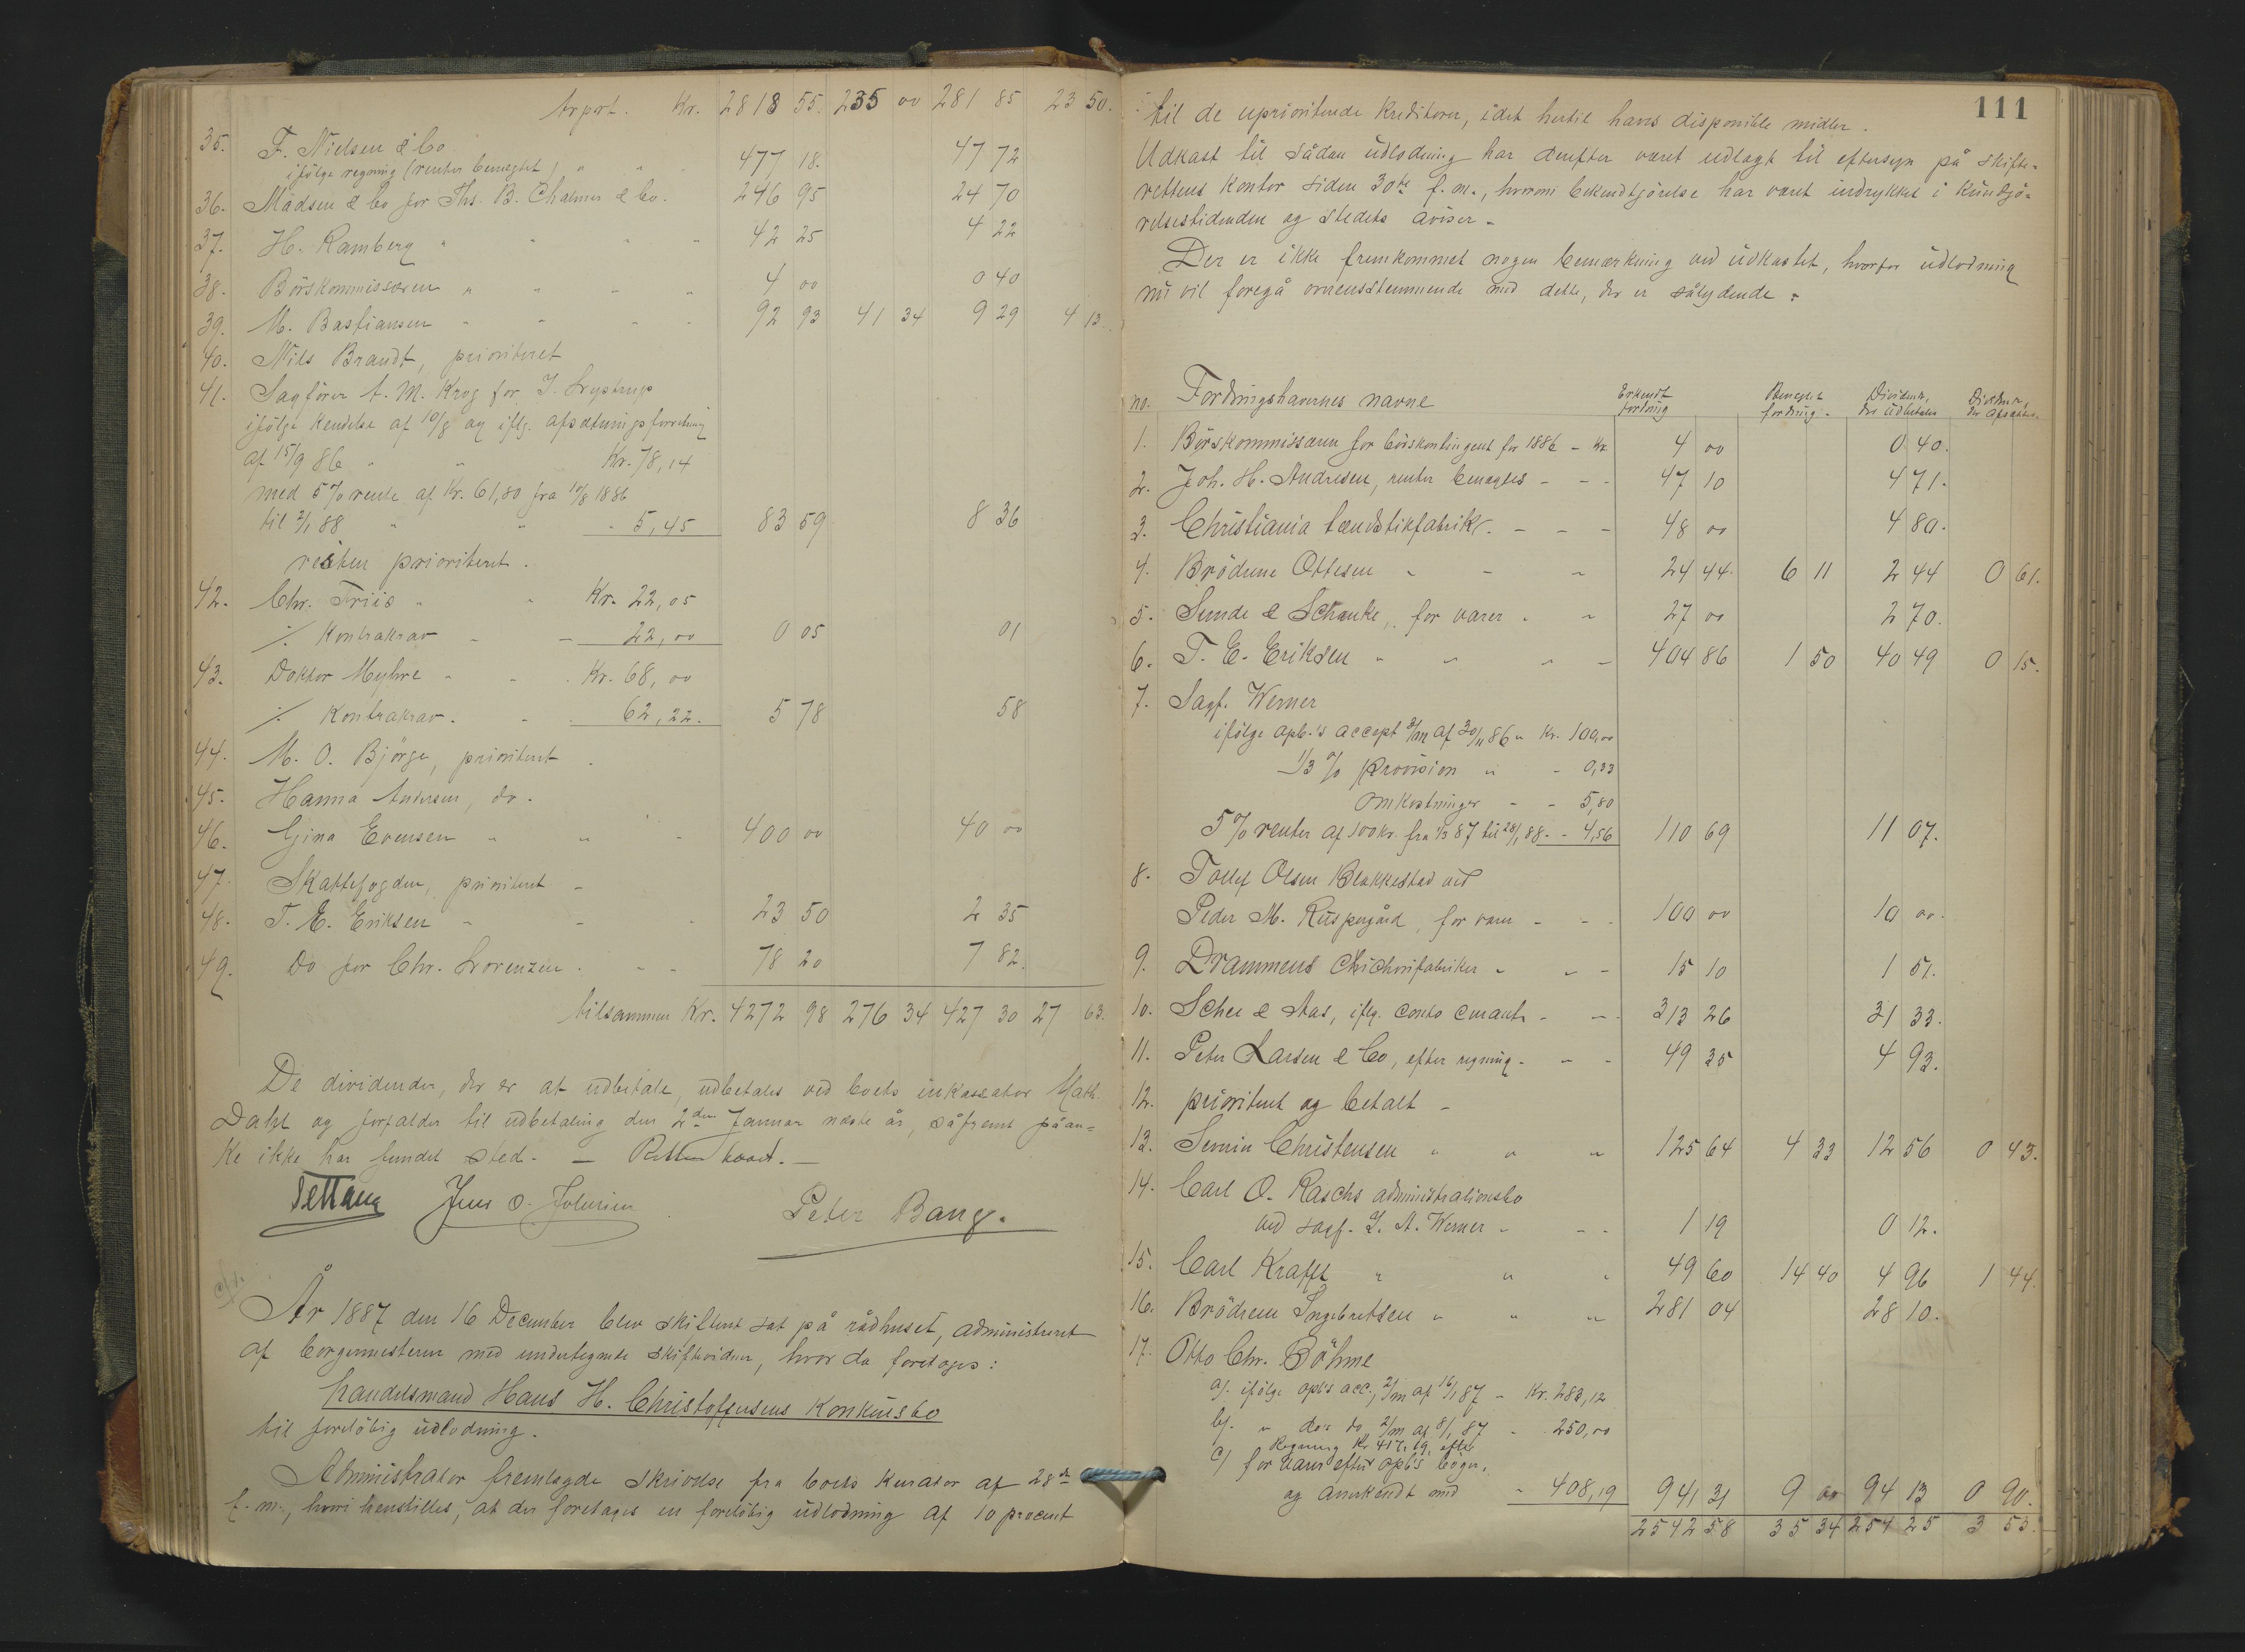 Arport. Kr. 2818 55. 235 00 281 85 23 50.
35. F. Nielsen & Co
ifølge regning (renter benegtet) " " 477 18. 47 72
36. Madsen & Co for Ths. B. & Co. 246 95 24 70
37. H. Ramberg " " " " 42 25 4 22
38. Börskommissæren " " " " 4 00 0 40
39. M. Bastiansen " " " " 92 93 41 34 9 29 4 13.
40. Nils Brandt, prioriteret
41. Sagförer A. M. Krog for J. Lystrup
ifölge Kendelse af 10/8 og iflg. afsætningsforretning
af 15/9 86 " " Kr. 78,14
med 5% rente af Kr. 61,80 fra 10/8 1886
til 2/1 88 " " - 5,45 83 59 8 36
resten prioriteret.
42. Chr. Friis " " Kr. 22,05
÷ Kontrakrav - - 22,00 0 05 01
43. Doktor Myhre - - Kr. 68,00
÷ Kontrakrav. - - 62,22. 5 78 58
44. M. O. Björge, prioriteret.
45. Hanna Andersen, do.
46. Gina Evensen " " - 400 00 40 00
47. Skattefogden, prioriteret -
48. T. E. Eriksen - - - 23 50 2 35
49. Do for Chr. Lorenzen. - - 78 20 7 82.
tilsammen Kr. 4272 98 276 34 427 30 27 63.
De dividender, der er at udbetale, udbetales ved boets inkassator Math.
Dahl og forfalder til udbetaling den 2den Januar næste år, såfremt påan=
ke ikke har fundet sted. — Retten hævet. —
Jens O. Johnsen Peter Bang.
År 1887 den 16 December blev skifteret sat på rådhuset, administreret
af borgermesteren med undertegnede skiftevidner, hvor da foretoges:
handelsmand Hans H. Christoffensens Konkursbo
til foreløbig udlodning.
Administrator fremlagde skrivelse fra boets kurator af 28de
f. m., hvori henstilles, at der foretages en foreløbig udlodning af 10 procent
111
til de uprioriterede kreditorer, idet hertil haves disponible midler.
Udkast til sådan udlodning har derefter været udlagt til eftersyn på skifte-
rettens kontor siden 30te f. m., hvorom bekendtgjörelse har været indrykket i Kundgjö-
relsestidenden og stedets aviser -
Der er ikke fremkommet nogen bemærkning ved udkastet, hvorfor udlodning
nu vil foregå overensstemmende med dette, der er sålydende:
no. Fordringshavernes navne Erkendt fordring Benegtet fordring. Dividende, der udbetales Dividende, der afsættes.
1. Börskommissæren for börskontingent for 1886 - Kr. 4 00 0 40.
2. Joh. H. Andresen, renter benegtes - - - 47 10 4 71.
3. Christiania tændstikfabrik. - - - 48 00 4 80.
4. Brödrene Ottesen - - - 24 44. 6 11 2 44 0 61.
5. Semde & Schanke, for varer - - 27 00 2 70.
6. T. E. Eriksen " " " - 404 86 1 50 40 49 0 15.
7. Sagf. Werner
ifölge opb.'s accept 3/m af 30/11 86 " Kr. 100,00
1/3 % provision " - 0,33
omkostninger - - 5,80
5% renter af 100 kr. fra 1/3 87 til 28/1 88 - - 4,56 110 69 11 07.
8. Tollef Olsen Blakkestad ved
Peder M. Ruspergård, for varer - - - 100 00 10 00.
9. Drammens Chichorifabriker - - - 15 10 1 51.
10. Scheu & Aas, iflg. conto courante - - 313 26 31 33.
11. Peter Larsen & Co, efter regning - - - 49 35 4 93.
12. prioriteret og betalt -
13. Semin Christensen " " " 125 64 4 33 12 56 0 43.
14. Carl O. Raschs administrationsbo
ved sagf. J. A. Werner - - - 1 19 0 12.
15. Carl Krafft " " " 49 60 14 40 4 96 1 44.
16. Brödrene Ingebretsen " " " 281 04 28 10.
17. Otto Chr. Böhme
a/. ifölge opb's acc., 2/m af 16/1 87 - Kr. 283,12
b/. " do's do 2/m af 8/1 87 - 250,00
Regning Kr 417,19, efter
c/ for varer efter opb's böger.
og anerkendt med - 408,19 941 31 9 00 94 13 0 90.
2542 58 35 34 254 25 3 53.